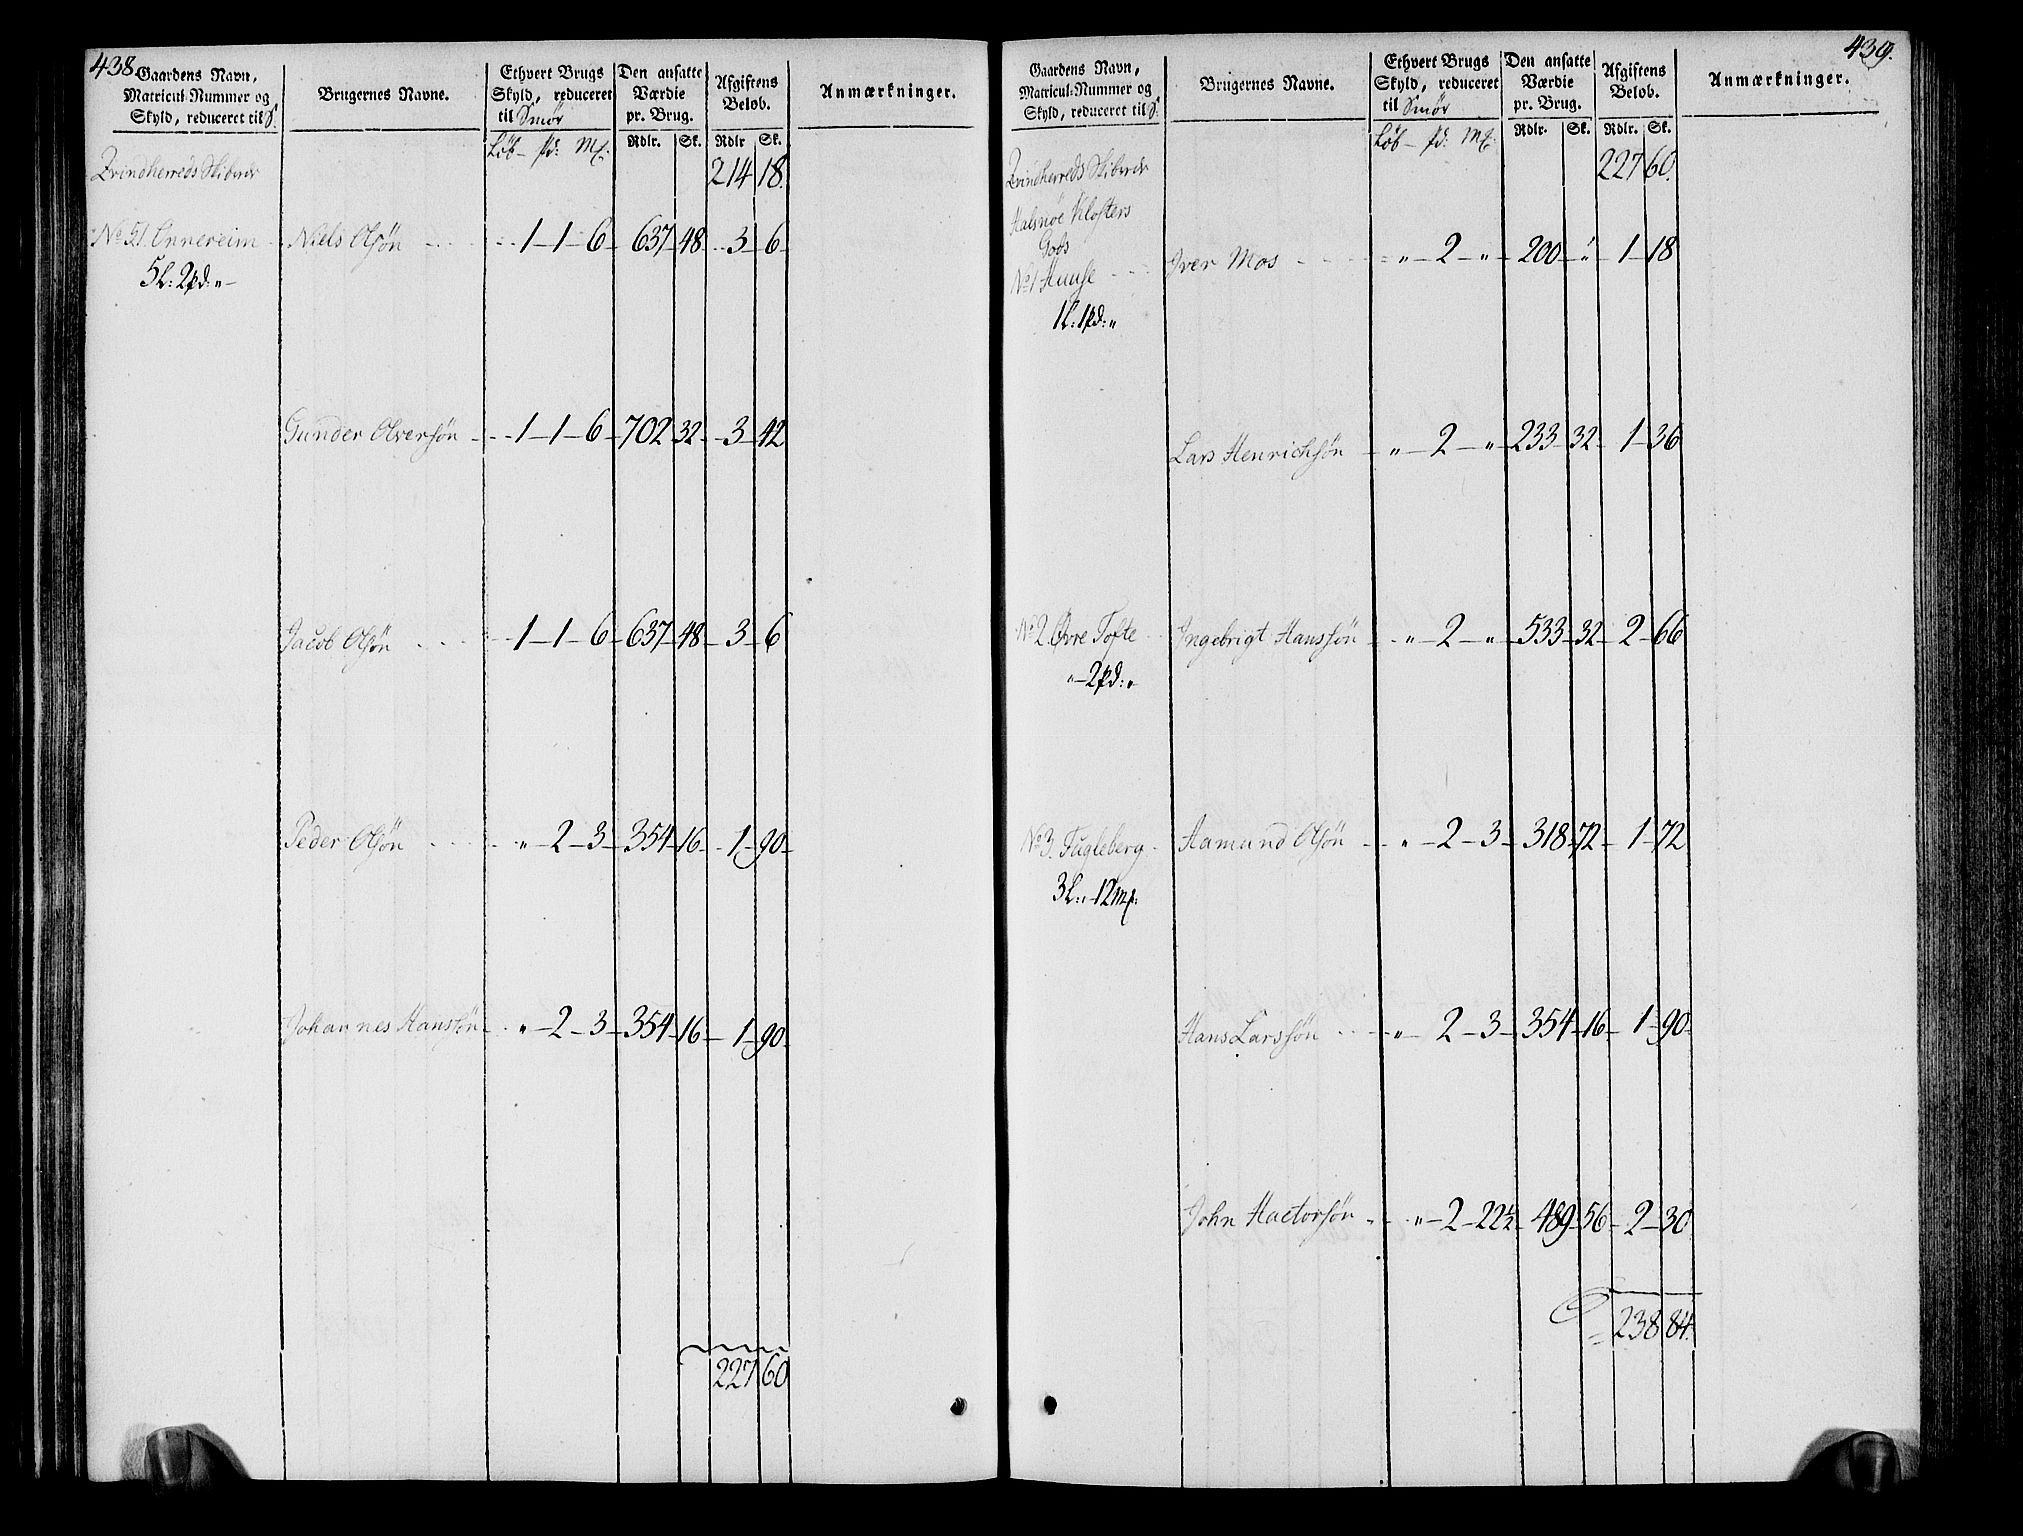 438.
Gaardens Navn, Matricul-Nummer og Skyld, reduceret til S.
Brugernes Navne.
Ethvert Brugs Skyld, reduceret til Smør
Den ansatte Værdie pr. Brug.
Afgiftens Beløb.
Anmærkninger.
Løb — pd: Mk:
Rdlr. Sk. Rdlr Sk.
Qvindherreds Skibrede 214 18.
No 51. Ennereim Niels Olsøn 1 — 1 — 6 — 637 48 3 6
5L: 2pd: „ —
Gunder Olversøn 1 — 1 — 6 — 702 32 3 42
Jacob Olsøn 1 — 1 — 6 — 637 48 3 6
Peder Olsøn „ — 2 — 3 — 354 16 1 90
Johannes Hanssøn „ — 2 — 3 — 354 16 1 90
227 60
439.
Gaardens Navn, Matricul-Nummer og Skyld, reduceret til S.
Brugernes Navne.
Ethvert Brugs Skyld, reduceret til Smør
Den ansatte Værdie pr. Brug.
Afgiftens Beløb.
Anmærkninger.
Løb — pd: Mk:
Rdlr. Sk. Rdlr. Sk.
Qvindherreds Skibrede 227 60.
Halsnöe Klosters
Gods
No 1 Hauge Iver Mos „ — 2 — „ 200 „ 1 18
1L: 1pd: „
Lars Henrichsøn „ — 2 — „ 233 32 1 36
No 2 Øvre Tofte Ingebrigt Hanssøn „ — 2 — „ 533 32 2 66
„ — 2pd: „
No 3. Fugleberg Aamund Olsøn „ — 2 — 3 318 72 1 72
3L: „ — 12 Mk:
Hans Larssøn „ — 2 — 3 354 16 1 90
John Hactorsøn „ — 2 — 22½ 489 56 2 30
238 84.